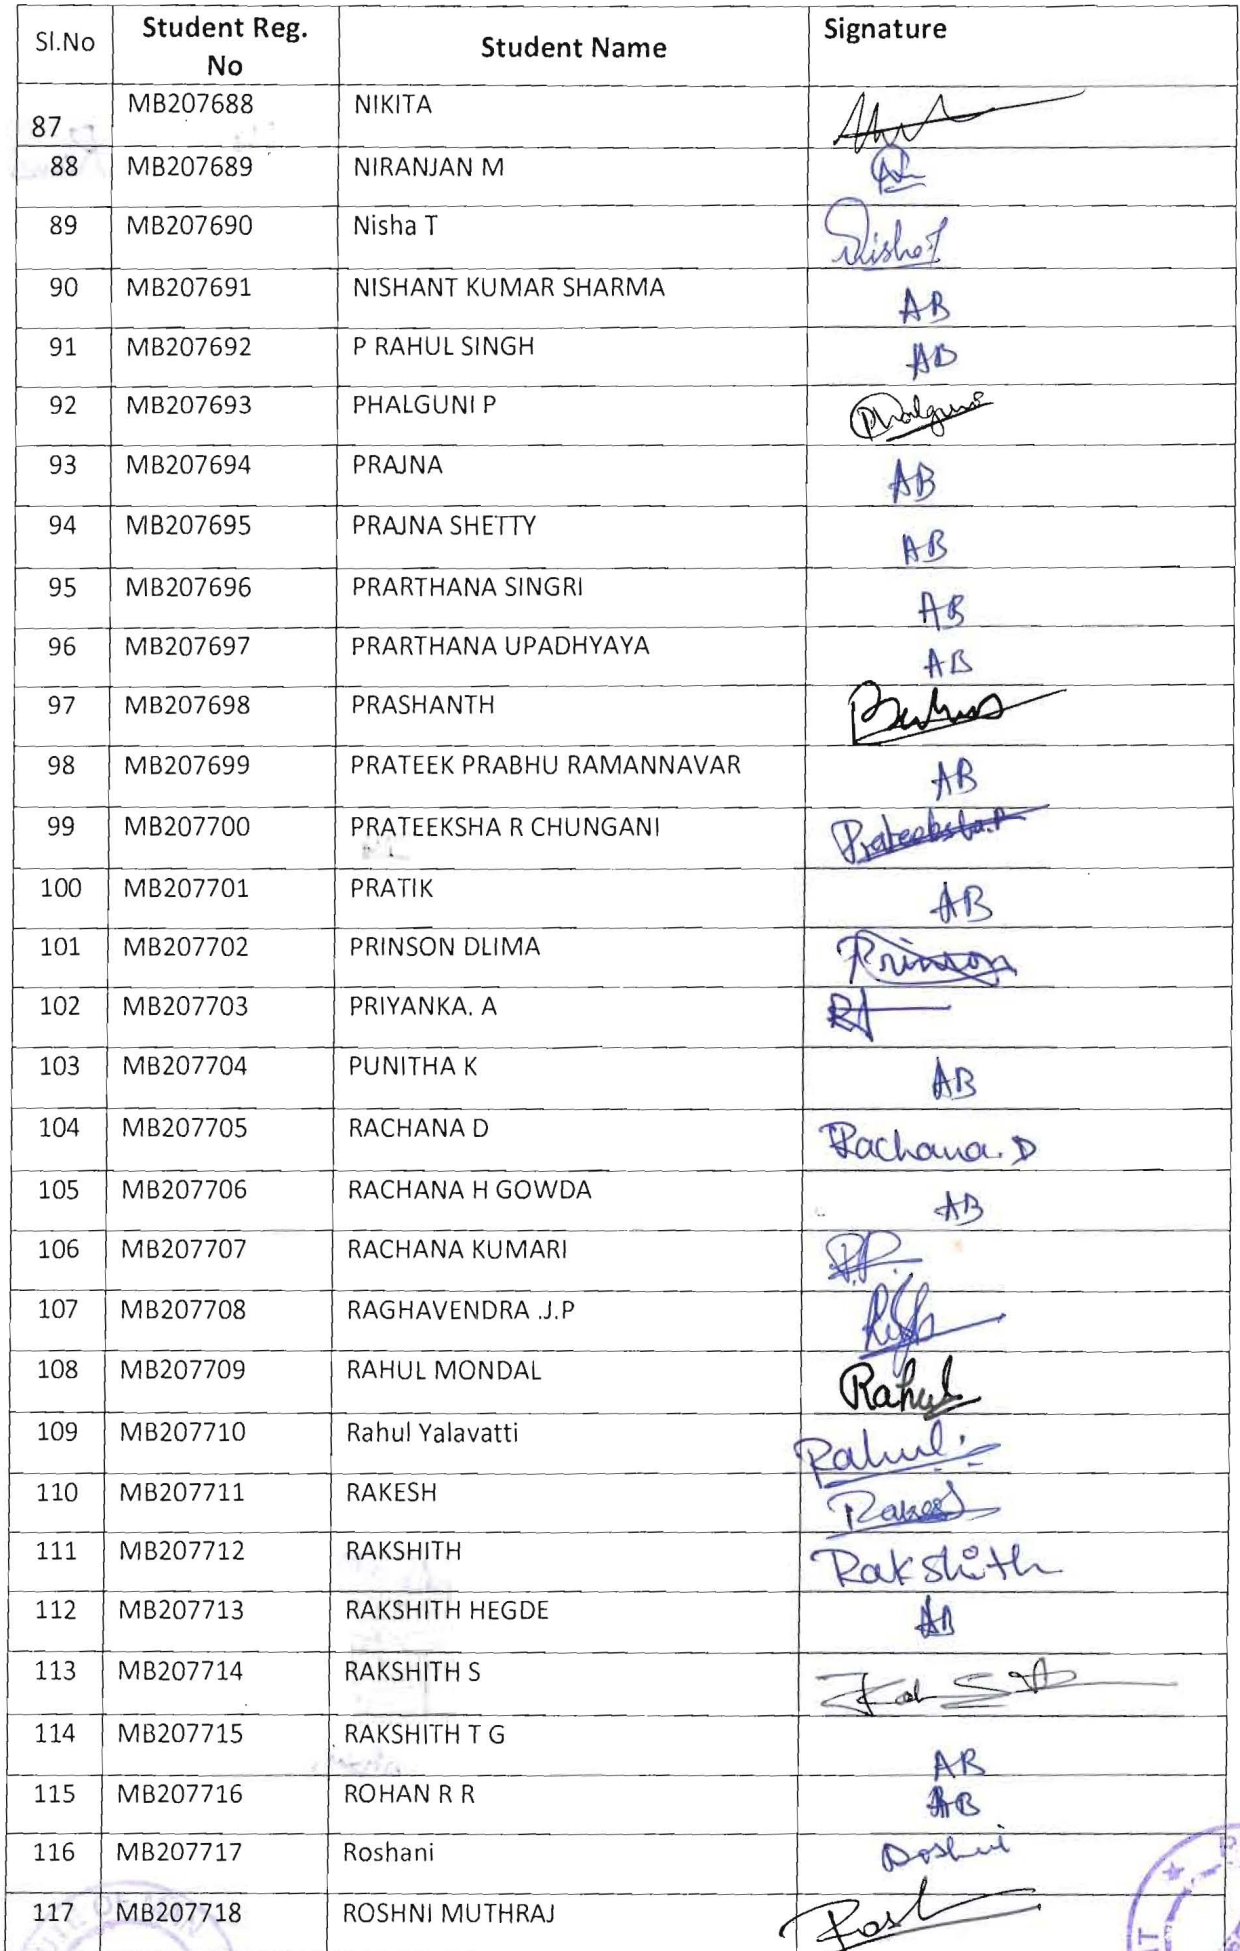 Sl.No Student Reg. No Student Name Signature
87 MB207688 NIKITA
88 MB207689 NIRANJAN M
89 MB207690 Nisha T Nisha T
90 MB207691 NISHANT KUMAR SHARMA AB
91 MB207692 P RAHUL SINGH AB
92 MB207693 PHALGUNI P Phalguni
93 MB207694 PRAJNA AB
94 MB207695 PRAJNA SHETTY AB
95 MB207696 PRARTHANA SINGRI AB
96 MB207697 PRARTHANA UPADHYAYA AB
97 MB207698 PRASHANTH
98 MB207699 PRATEEK PRABHU RAMANNAVAR AB
99 MB207700 PRATEEKSHA R CHUNGANI Prateeksha.R
100 MB207701 PRATIK AB
101 MB207702 PRINSON DLIMA Prinson
102 MB207703 PRIYANKA. A
103 MB207704 PUNITHA K AB
104 MB207705 RACHANA D Rachana. D
105 MB207706 RACHANA H GOWDA AB
106 MB207707 RACHANA KUMARI
107 MB207708 RAGHAVENDRA .J.P
108 MB207709 RAHUL MONDAL Rahul
109 MB207710 Rahul Yalavatti Rahul
110 MB207711 RAKESH Rakesh
111 MB207712 RAKSHITH Rakshith
112 MB207713 RAKSHITH HEGDE AB
113 MB207714 RAKSHITH S
114 MB207715 RAKSHITH T G AB
115 MB207716 ROHAN R R AB
116 MB207717 Roshani
117 MB207718 ROSHNI MUTHRAJ